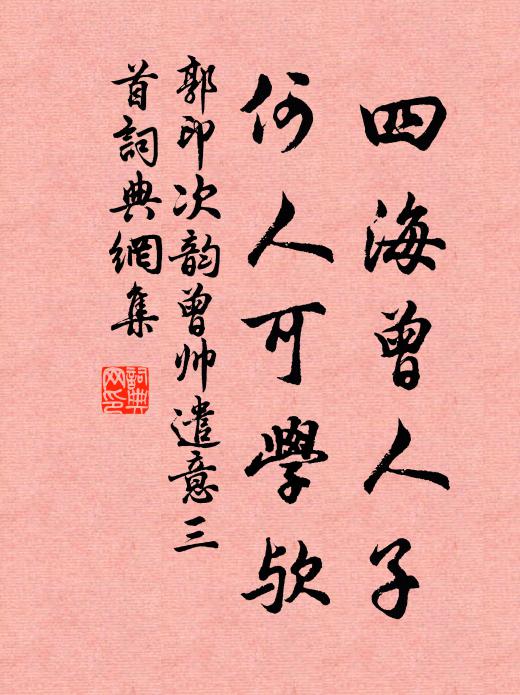 四海曾人子
何人可學欤
郭印次韵曾帅遣意三
首詞典網集
詞典
网印